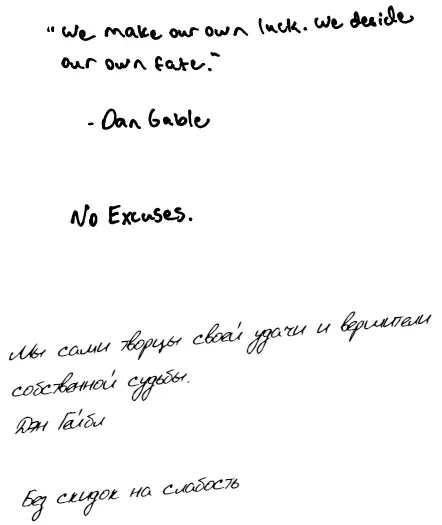 "We make our own luck. We decide
our own fate."
- Dan Gable
No Excuses.
Мы сами творцы своей удачи и вершители
собственной судьбы.
Дэн Гейбл
Без скидок на слабость